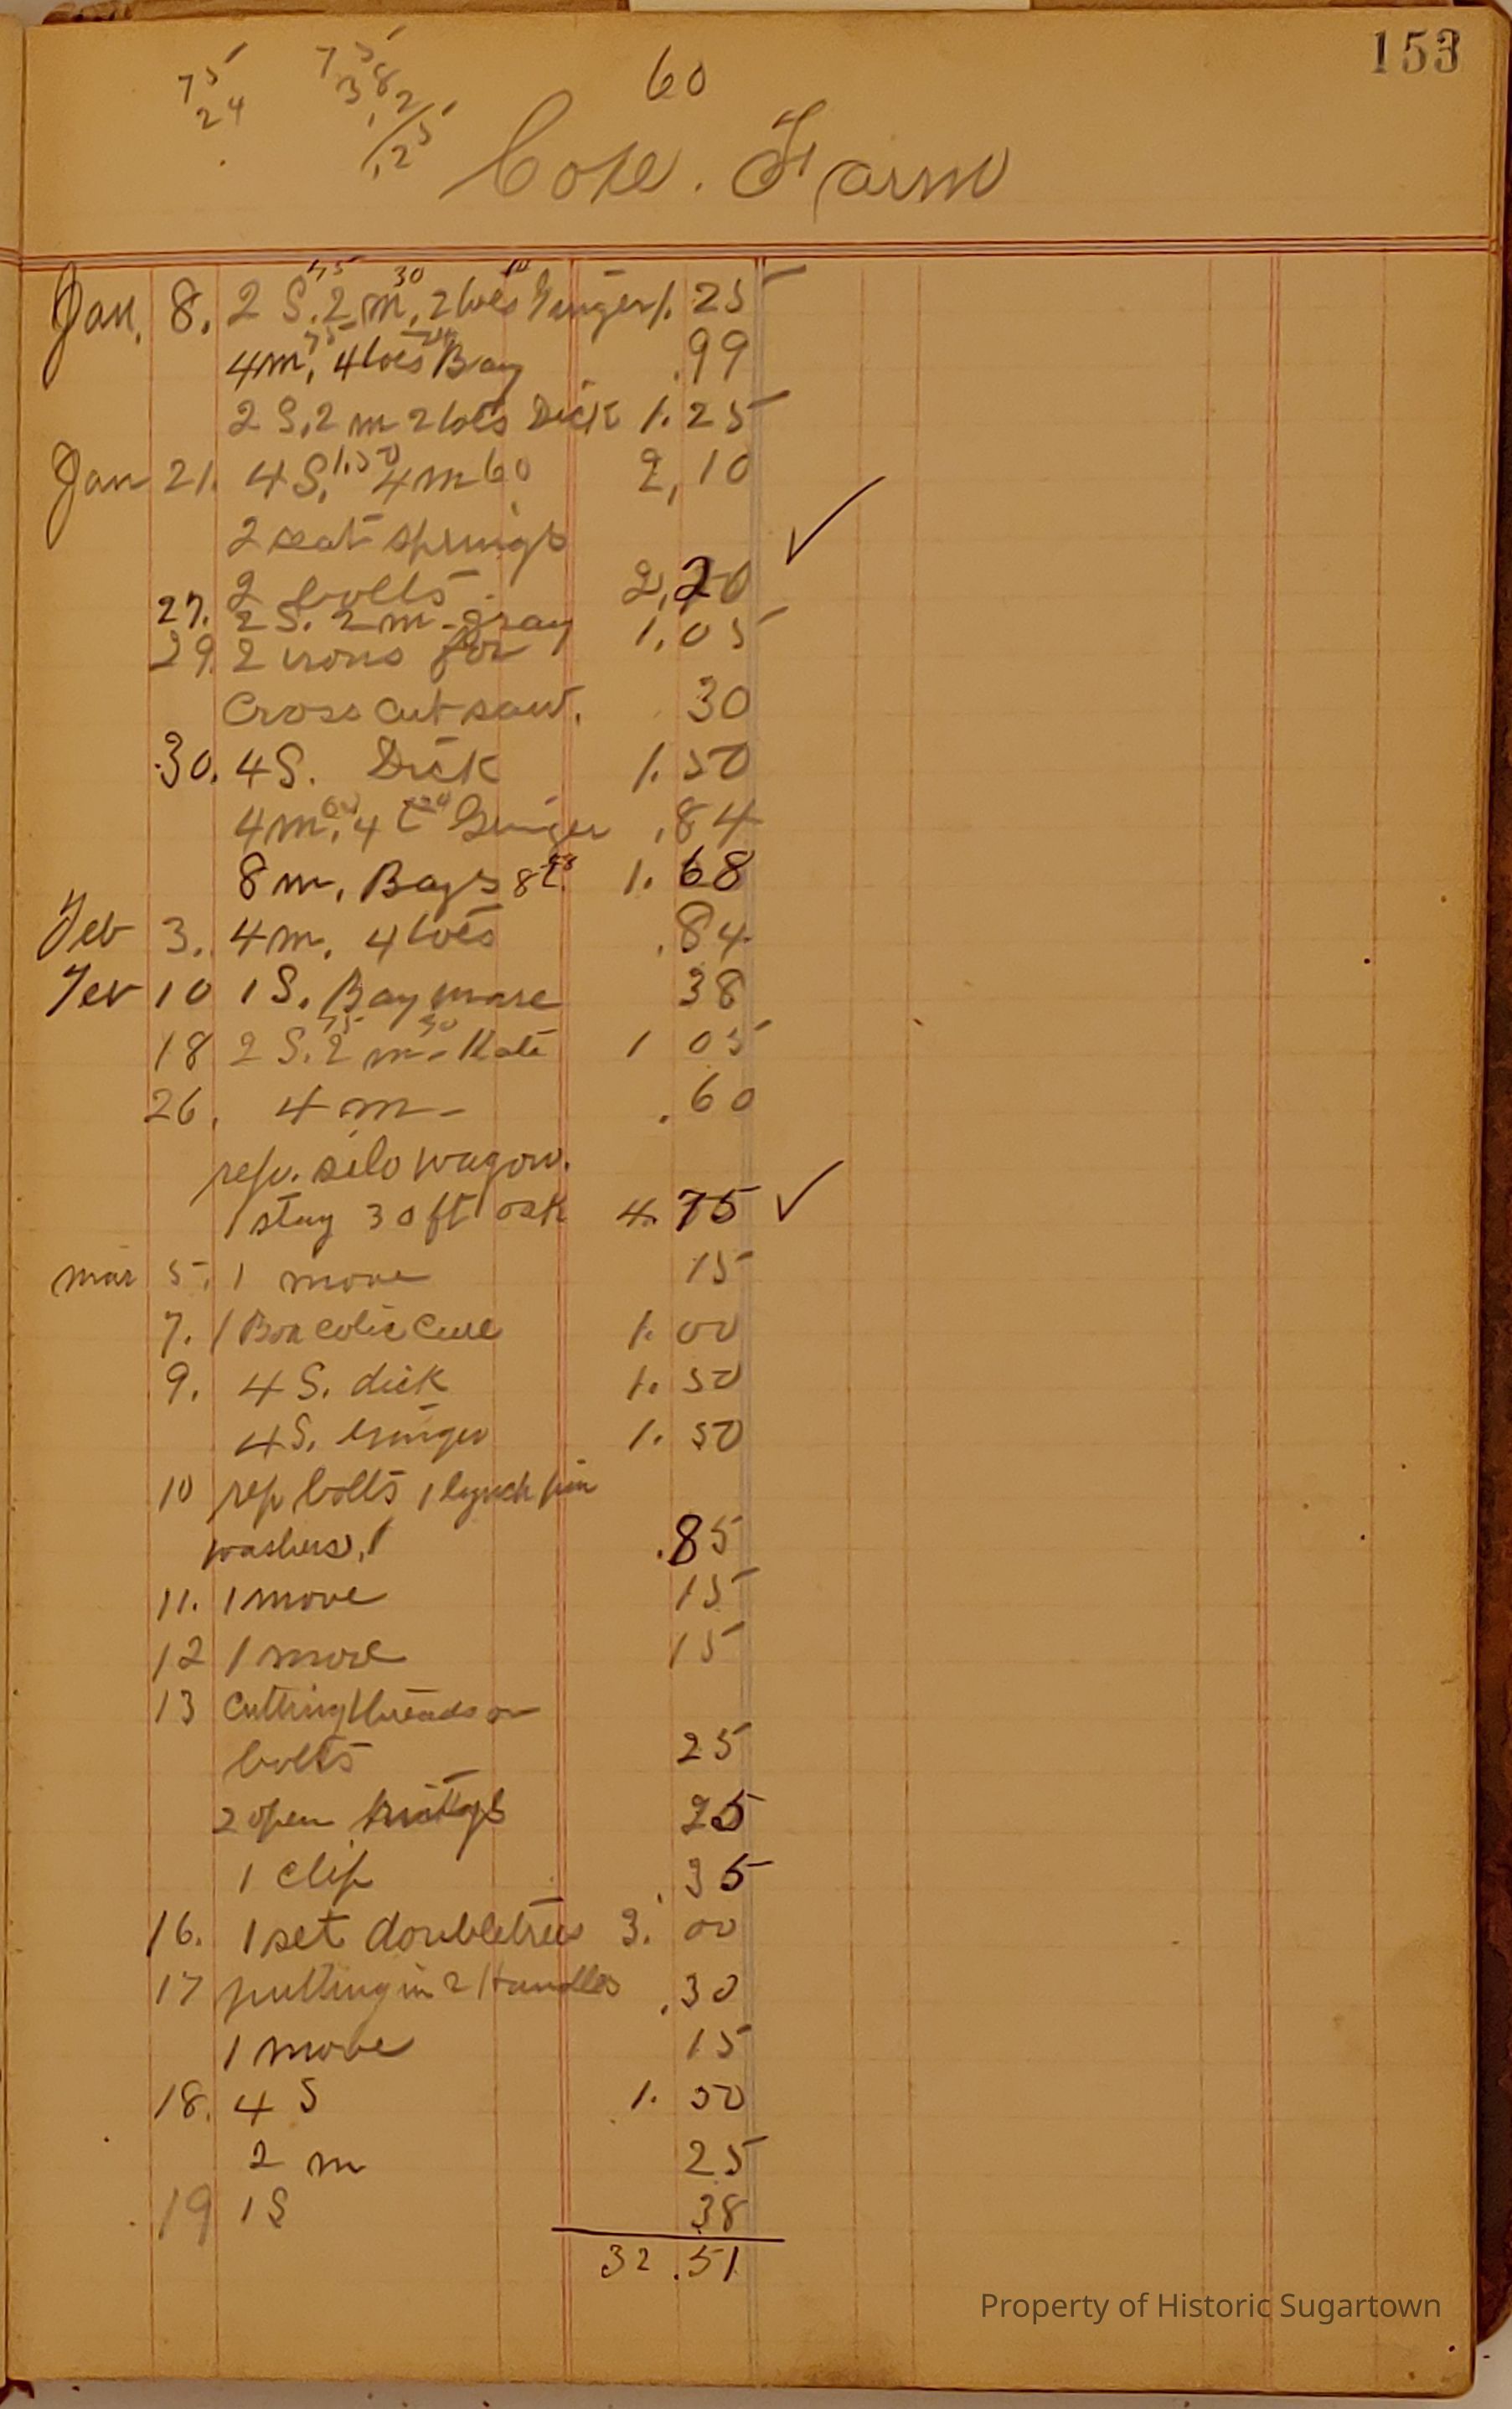 153
75
24
75
38
12
1.25
60
Cope. Farm
Jan. 8. 2 S. 75 2 m, 30 2 toes Ginger 1.25
4 m, 75 4 toes 24 Bay .99
2 S. 2 m 2 toes Dick 1.25
Jan 21. 4 S. 1.50 4 m 60 2,10
2 seat springs
2 bolts 2,20
27. 2 S. 2 m - gray 1.05
29. 2 irons for
Cross cut saw. 30
30. 4 S. Dick 1.50
4 m. 60 4 t 24 Ginger .84
8 m, Bays 8 t. 48 1.68
Feb 3. 4 m, 4 toes .84
Feb 10 1 S. Bay mare 38
18 2 S. 75 2 m 30 - Kate 1 05
26. 4 m - .60
rep. silo wagon.
1 stay 30 ft oak 4.75
mar 5. 1 move 15
7. 1 Box colic cure 1.00
9. 4 S. dick 1.50
4 S. Ginger 1.50
10 rep bolts 1 lynch pin
washers, 1 .85
11. 1 move 15
12 1 move 15
13 Cutting threads on
bolts 25
2 open 25
1 clip .35
16. 1 set doubletrees 3.00
17 putting in 2 Handles .30
1 move 15
18. 4 S 1.50
2 m 25
19 1 S 38
32.51
Property of Historic Sugartown